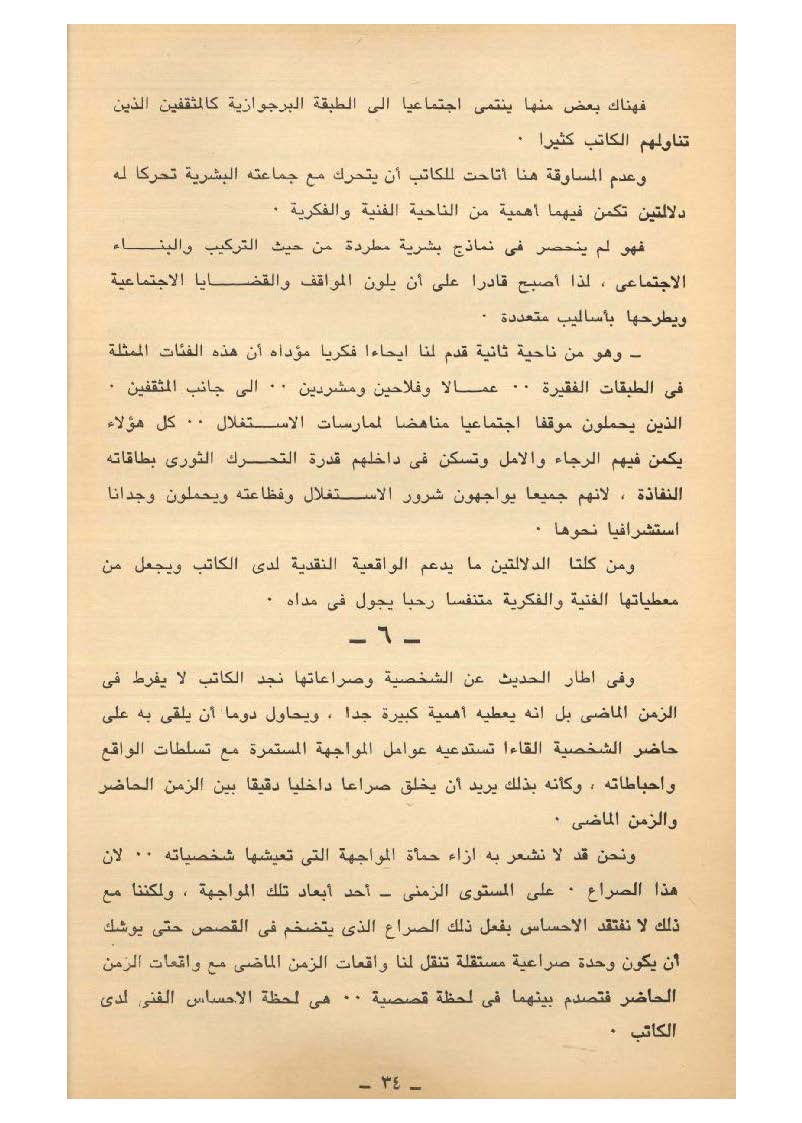 فهناك بعض منها ينتمى اجتماعيا الى الطبقة البرجوازية كالمثقفين الذين
تناولهم الكاتب كثيرا ٠
وعدم المساوقة هنا أتاحت للكاتب أن يتحرك مع جماعته البشرية تحركا له
دلالتين تكمن فيهما أهمية من الناحية الفنية والفكرية ٠
فهو لم ينحصر فى نماذج بشرية مطردة من حيث التركيب والبنـــاء
الاجتماعى ، لذا أصبح قادرا على أن يلون المواقف والقضـــايا الاجتماعية
ويطرحها بأساليب متعددة ٠
ـ وهو من ناحية ثانية قدم لنا ايحاءا فكريا مؤداه أن هذه الفئات الممثلة
فى الطبقات الفقيرة ٠٠ عمـــالا وفلاحين ومشردين ٠٠ الى جانب المثقفين ٠
الذين يحملون موقفا اجتماعيا مناهضا لممارسات الاســـتغلال ٠٠ كل هؤلاء
يكمن فيهم الرجاء والامل وتسكن فى داخلهم قدرة التحـــرك الثورى بطاقاته
النفاذة ، لانهم جميعا يواجهون شرور الاســـتغلال وفظاعته ويحملون وجدانا
استشرافيا نحوها ٠
ومن كلتا الدلالتين ما يدعم الواقعية النقدية لدى الكاتب ويجعل من
معطياتها الفنية والفكرية متنفسا رحبا يجول فى مداه ٠
ـ ٦ ـ
وفى اطار الحديث عن الشخصية وصراعاتها نجد الكاتب لا يفرط فى
الزمن الماضى بل انه يعطيه أهمية كبيرة جدا ، ويحاول دوما أن يلقى به على
حاضر الشخصية القاءا تستدعيه عوامل المواجهة المستمرة مع تسلطات الواقع
واحباطاته ، وكأنه بذلك يريد أن يخلق صراعا داخليا دقيقا بين الزمن الحاضر
والزمن الماضى ٠
ونحن قد لا نشعر به ازاء حمأة المواجهة التى تعيشها شخصياته ٠٠ لان
هذا الصراع ٠ على المستوى الزمنى ـ أحد أبعاد تلك المواجهة ، ولكننا مع
ذلك لا نفتقد الاحساس بفعل ذلك الصراع الذى يتضخم فى القصص حتى يوشك
أن يكون وحدة صراعية مستقلة تنقل لنا واقعات الزمن الماضى مع واقعات الزمن
الحاضر فتصدم بينهما فى لحظة قصصية ٠٠ هى لحظة الاحساس الفنى لدى
الكاتب ٠
ـ ٣٤ ـ